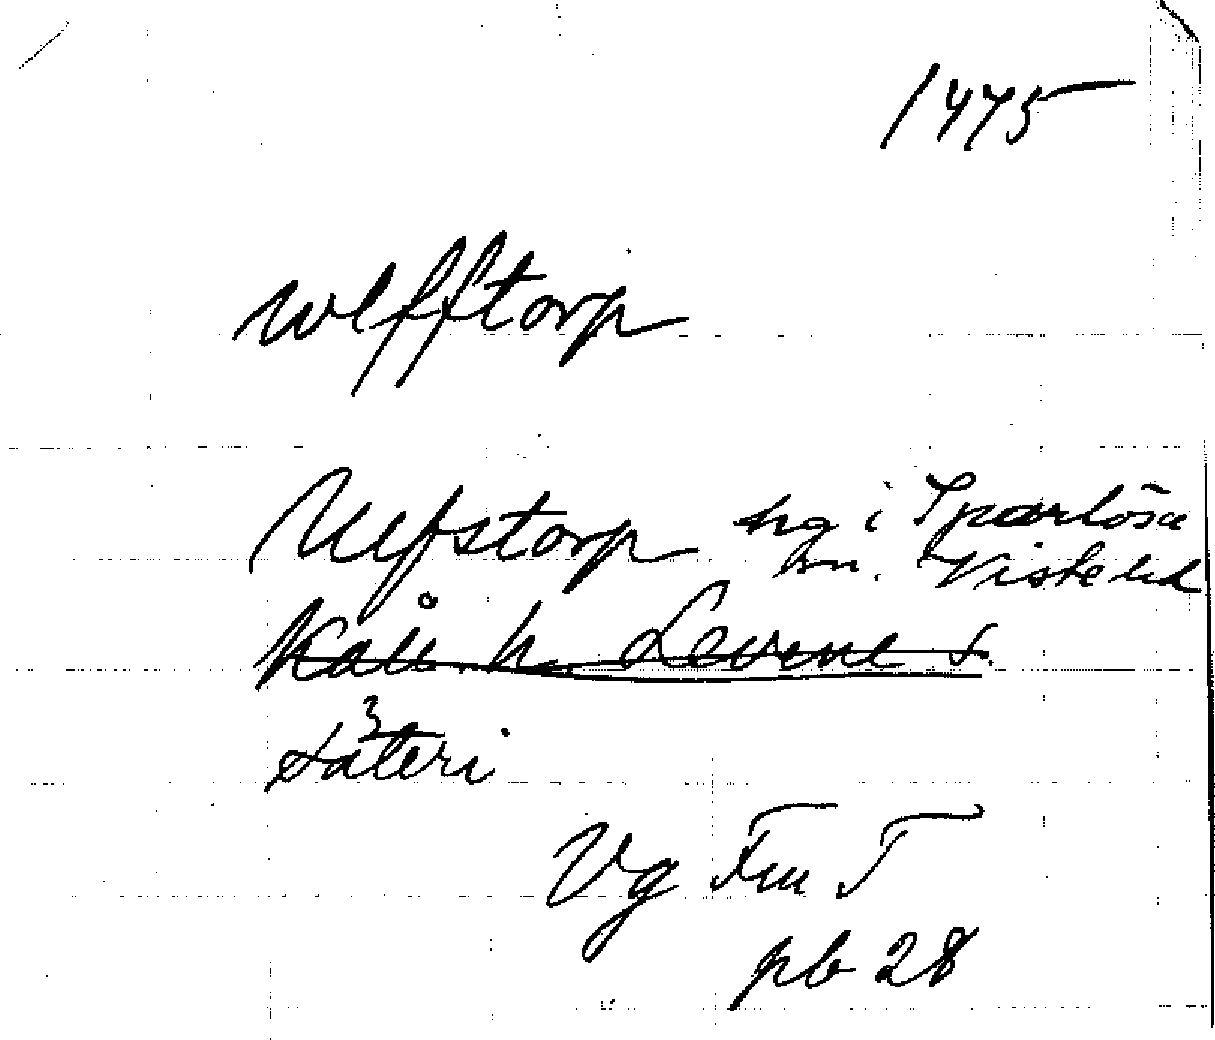 1475
wlfftorp
Ulfstorp hg i Sparlösa
sn. Viste hd
Kålls h. Levene s.
säteri
Vg Fru T
pb 28